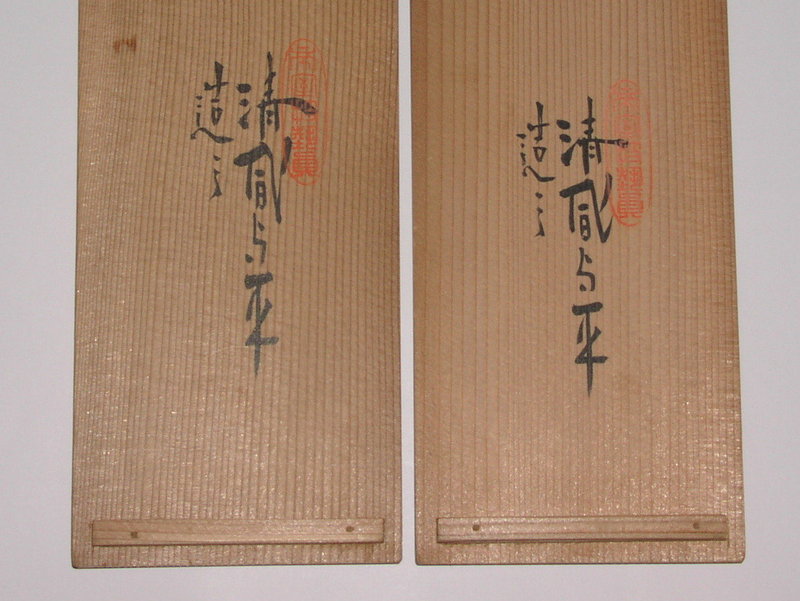 清風与平
造之
清風与平
造之